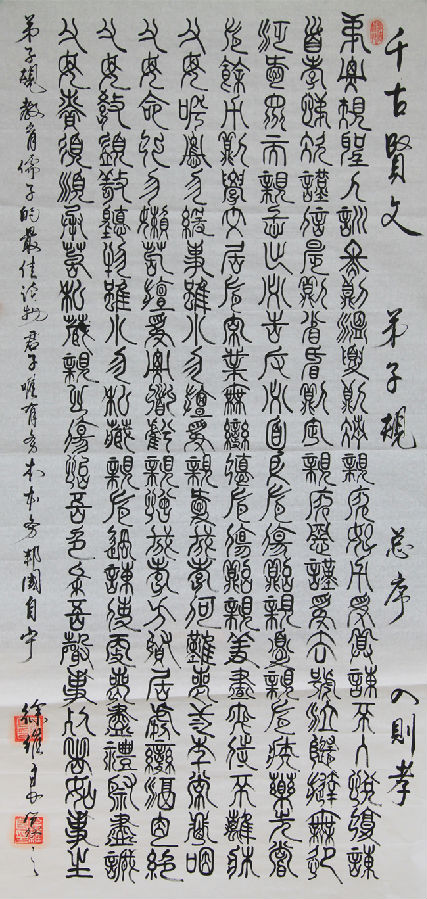 千古賢文 弟子規 总序 入則孝
弟子規聖人訓冬則溫夏則凊親所好力為具諫不入悅復諫
首孝悌次謹信晨則省昏則定親所惡謹為去號泣隨撻無怨
泛愛眾而親仁出必告反必面身有傷貽親憂親有疾藥先嘗
有餘力則學文居有常業無變德有傷貽親羞晝夜侍不離床
父母呼應勿緩事雖小勿擅為親愛我孝何難喪三年常悲咽
父母命行勿懶苟擅為子道虧親憎我孝方賢居處變酒肉絕
父母教須敬聽物雖小勿私藏親有過諫使更喪盡禮祭盡誠
父母責須順承苟私藏親心傷怡吾色柔吾聲事死者如事生
弟子規教育儒子的最佳读物君子唯有务本本务邦國自宁
徐維